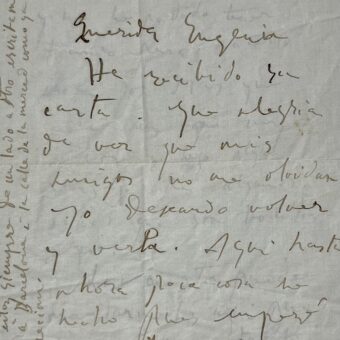 Querida Eugenia
He recibido su
carta. Que alegria
da ver que mis
amigos no me olvidan
yo deseando volver
y verla. Aqui hasta
ahora poca cosa he
hecho pues empezé
siempre de un lado a otro escriteme
a Barcelona á la calle de la merced como ya